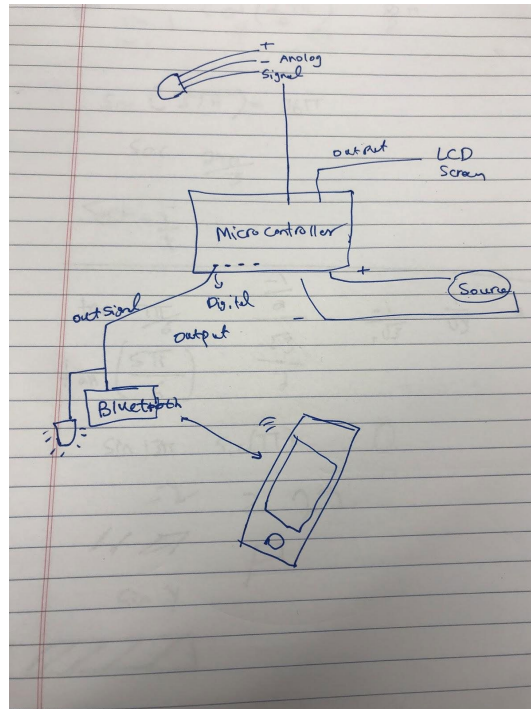 +
- Analog
Signal
output
LCD
Screen
Microcontroller
+
Source
-
Digital
output
outsignal
Bluetooth